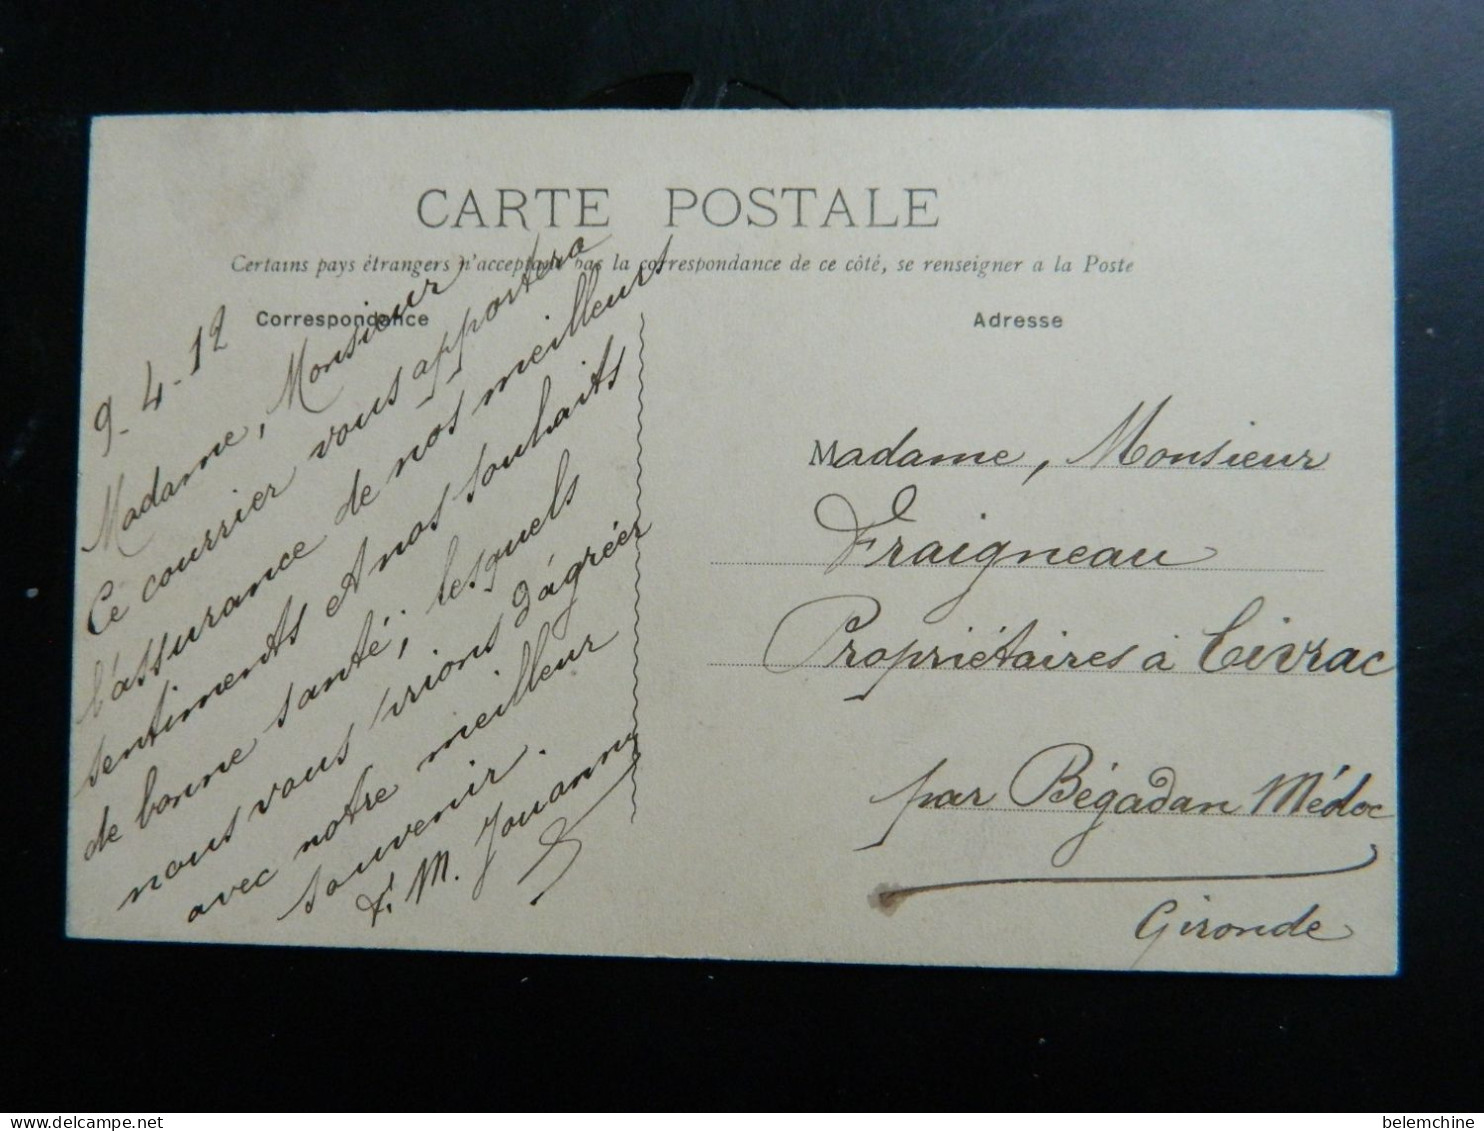 CARTE POSTALE
Certains pays étrangers n'acceptant pas la correspondance de ce côté, se renseigner a la Poste
Correspondance
9-4-12
Madame, Monsieur
Ce courrier vous apportera
l'assurance de nos meilleurs
sentiments et nos souhaits
de bonne santé, lesquels
nous vous prions d'agréer
avec notre meilleur
souvenir.
M. Jouanny
Adresse
Madame, Monsieur
Fraigneau
Propriétaires à Civrac
par Bégadan Médoc
Gironde
delcampe.net
belemchine